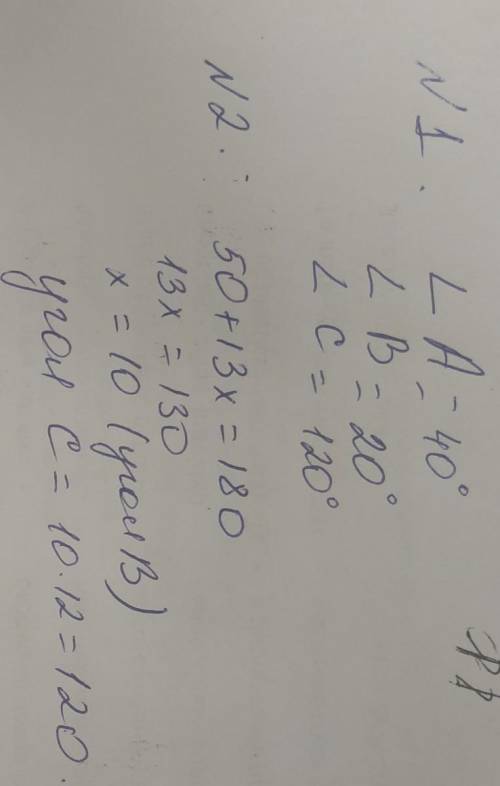 N 1.
∠ A = 40°
∠ B = 20°
∠ C = 120°
N 2.
50 + 13x = 180
13x = 130
x = 10 (угол B)
угол C = 10·12 = 120.